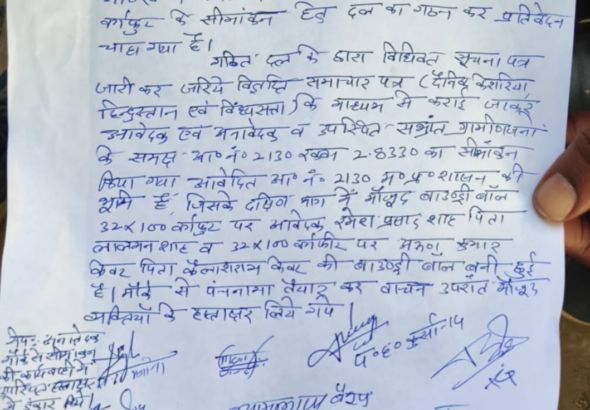 वर्गफुट के सीमांकन हेतु दल का गठन कर प्रतिवेदन
चाहा गया है।
गठित दल के द्वारा विधिवत सूचना पत्र
जारी कर जरिये विज्ञप्ति समाचार पत्र (दैनिक केशरिया
हिन्दुस्तान एवं विंध्यसत्ता) के माध्यम से कराई जाकर
आवेदक एवं अनावेदक व उपस्थित संभ्रांत ग्रामीणजनों
के समक्ष आ०नं० 2130 रकबा 2.8330 का सीमांकन
किया गया आवेदित आ०नं० 2130 म०प्र० शासन की
भूमि है, जिसके दक्षिण भाग में मौजूद बाउण्ड्री वॉल
32x100 वर्गफुट पर आवेदक रमेश प्रसाद शाह पिता
लालमन शाह व 32x100 वर्गफीट पर कुमार
केवट पिता कैलाशराम केवट की बाउण्ड्री वॉल बनी हुई
है। मौके से पंचनामा तैयार कर वाचन उपरांत मौजूद
व्यक्तियों के हस्ताक्षर लिये गये।
नोट:-
मौके से सीमांकन
की कार्यवाही में
हस्ताक्षर
से इंकार किये।